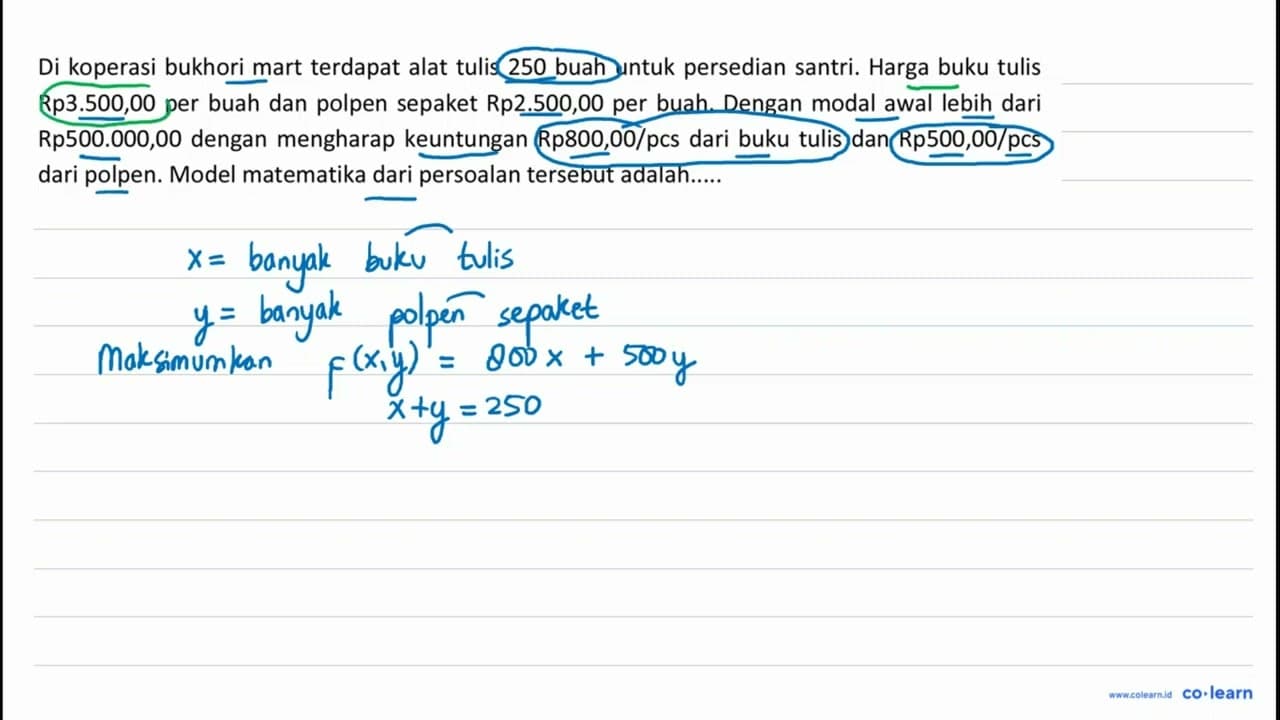 Di koperasi bukhori mart terdapat alat tulis 250 buah untuk persedian santri. Harga buku tulis
Rp3.500,00 per buah dan polpen sepaket Rp2.500,00 per buah. Dengan modal awal lebih dari
Rp500.000,00 dengan mengharap keuntungan Rp800,00/pcs dari buku tulis dan Rp500,00/pcs
dari polpen. Model matematika dari persoalan tersebut adalah.....
x = banyak buku tulis
y = banyak polpen sepaket
Maksimumkan f(x,y) = 800x + 500y
x+y = 250
www.colearn.id co·learn